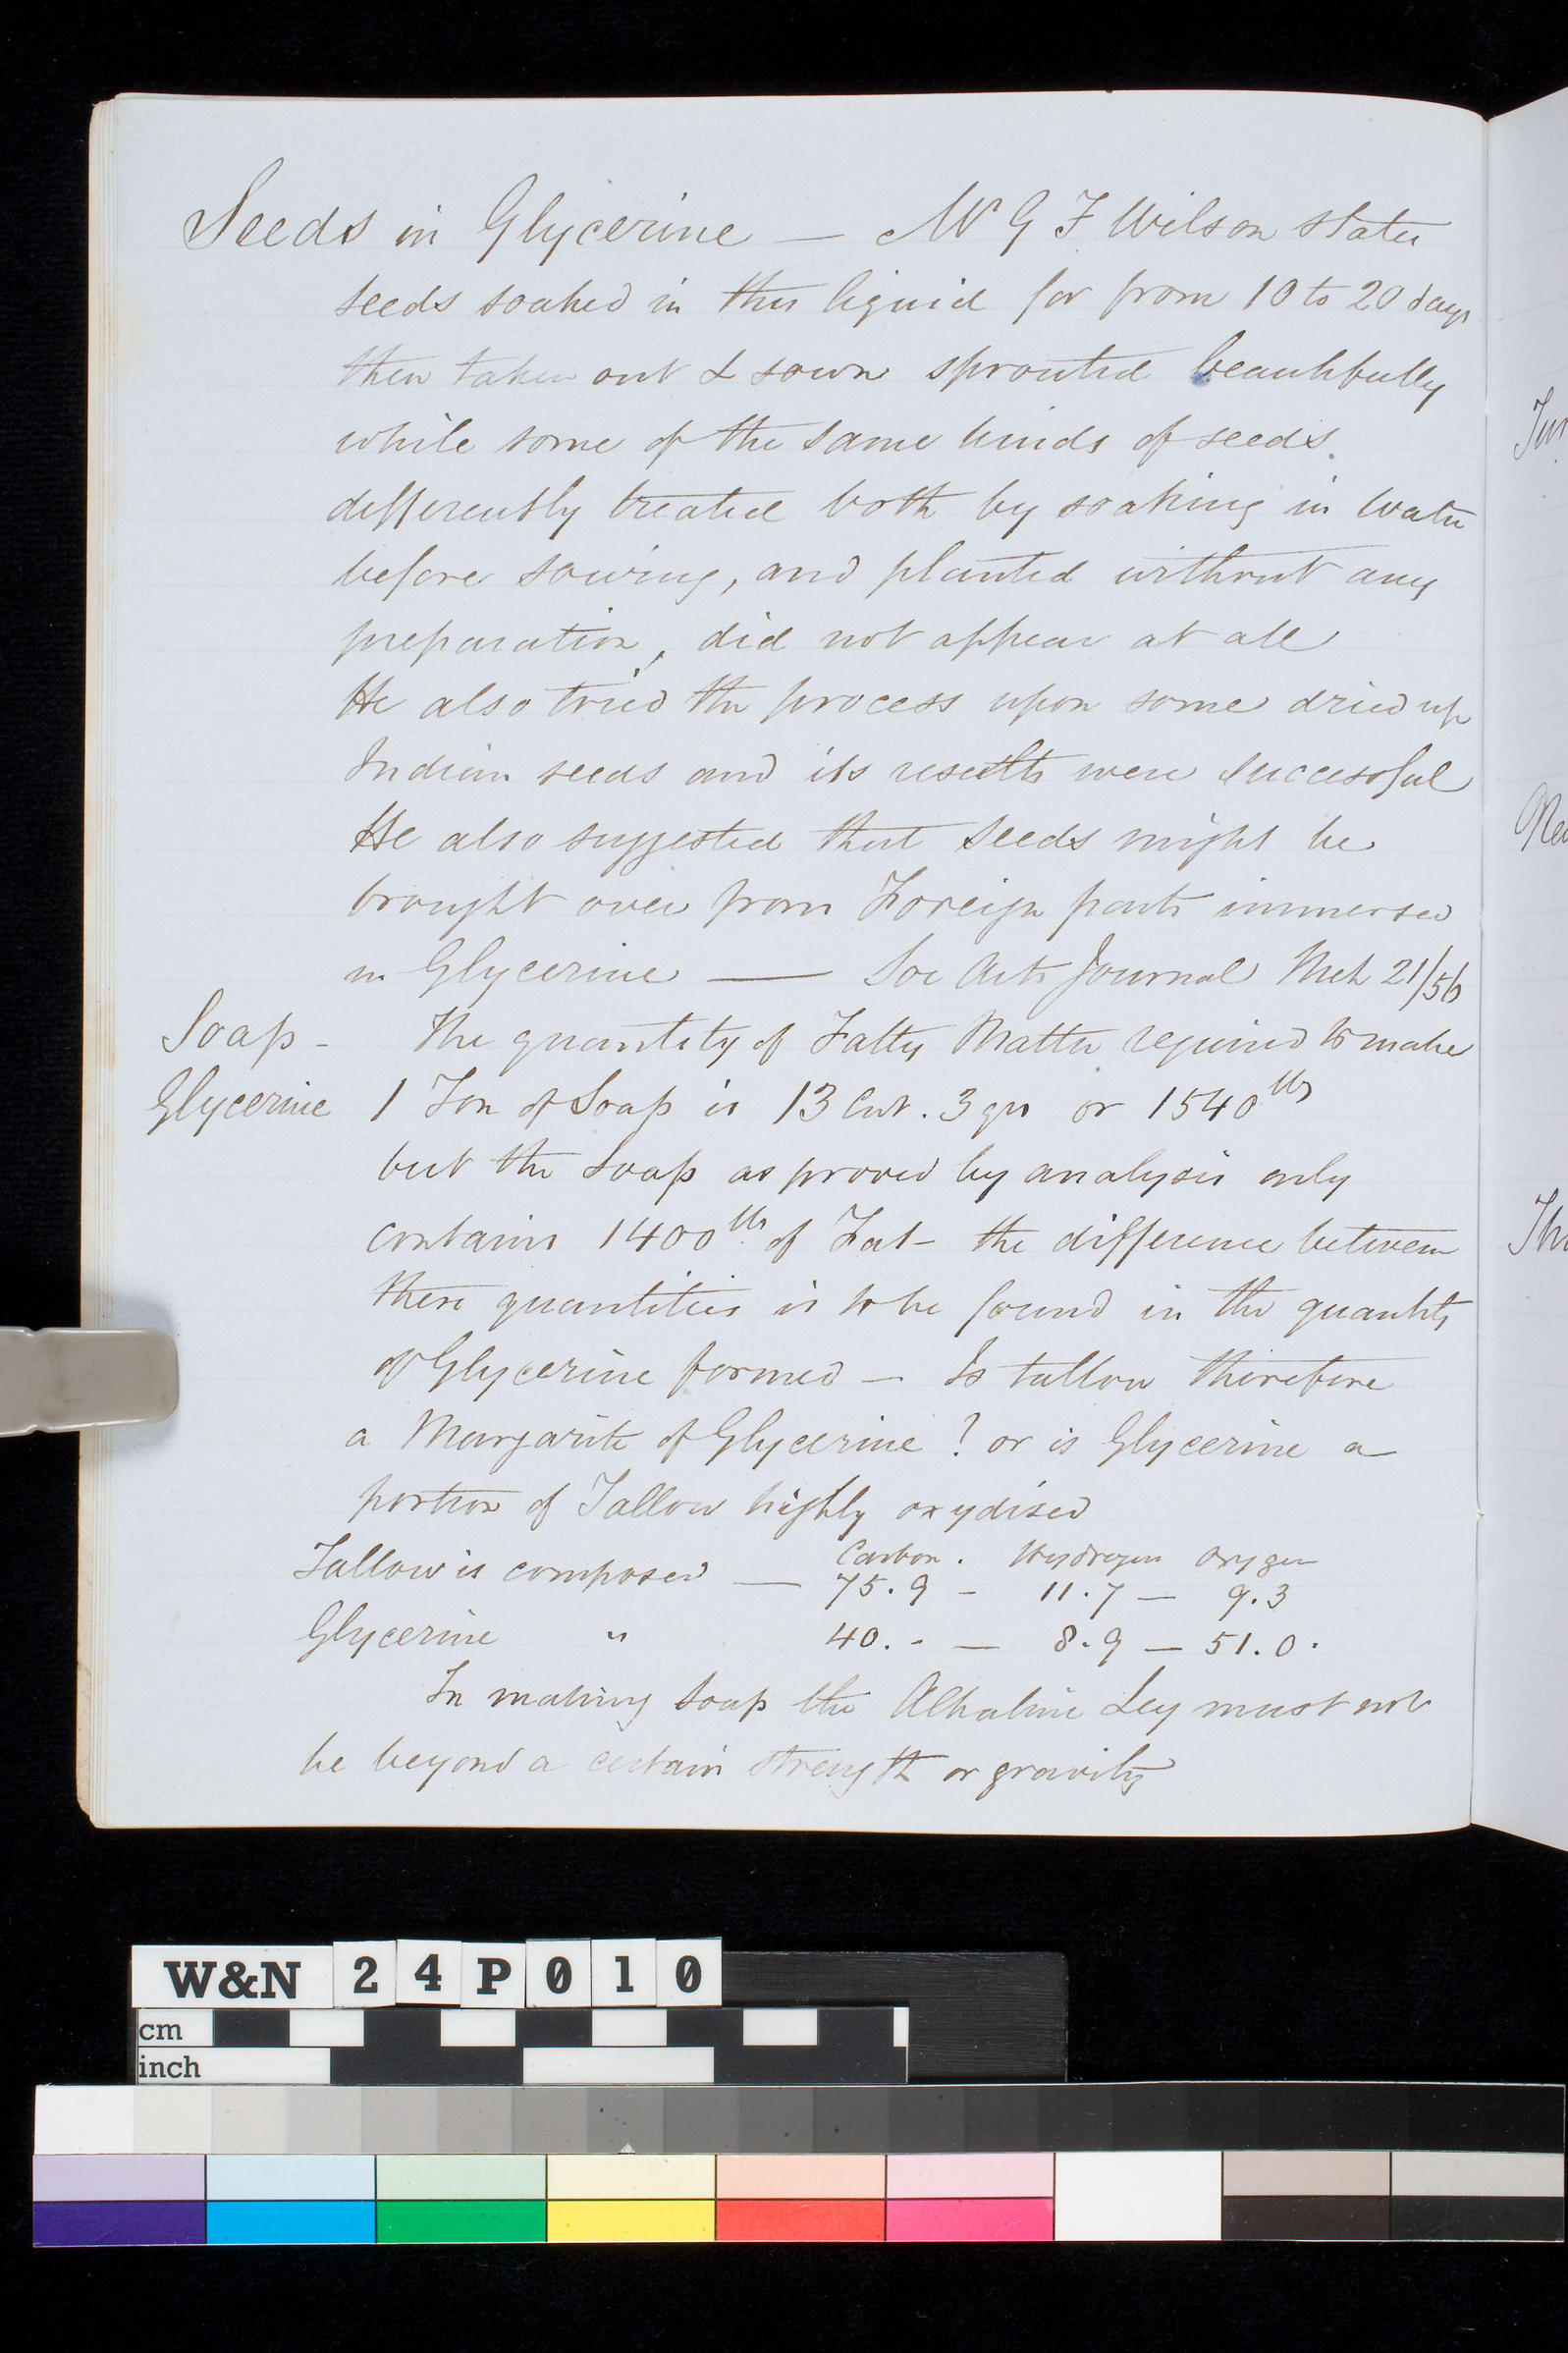 Seeds in Glycerine — Mr G F Wilson states
seeds soaked in this liquid for from 10 to 20 days
then taken out & sown sprouted beautifully
while some of the same kinds of seeds.
differently treated both by soaking in water
before sowing, and planted without any
preparation, did not appear at all
He also tried the process upon some dried up
Indian seeds and its results were successful
He also suggested that seeds might be
brought over from Foreign parts immersed
in Glycerine — Soc Arts Journal Mch 21/56
Soap - The quantity of Fatty Matter required to make
Glycerine 1 Ton of Soap is 13 Cwt. 3 qrs or 1540 lbs
but the Soap as proved by analysis only
contains 1400 lbs of Fat - the difference between
these quantities is to be found in the quantity
of Glycerine formed — Is tallow therefore
a Margarite of Glycerine ? or is Glycerine a
portion of Tallow highly oxydised
Carbon . Hydrogen Oxygen
Tallow is composed — 75.9 - 11.7 — 9.3
Glycerine " 40. - — 8.9 — 51.0.
In making Soap the Alkaline Ley must not
be beyond a certain strength or gravity
W&N 24P010
cm
inch